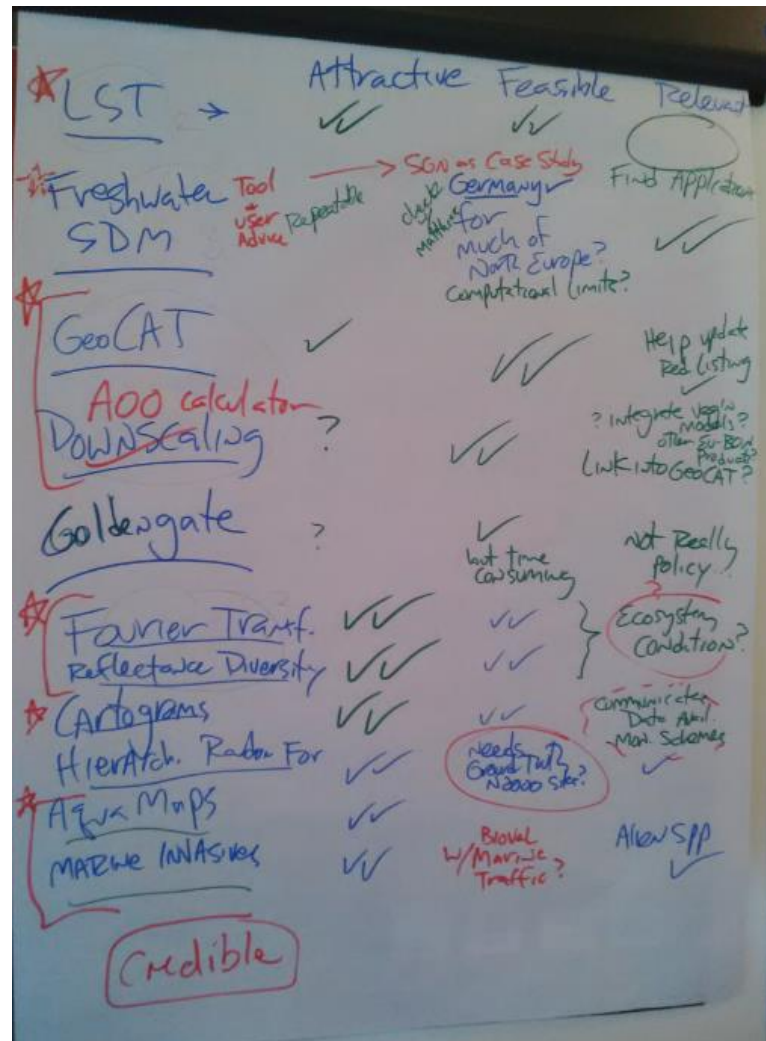 Attractive Feasible Relevant
LST → ✓✓ ✓✓
Find Application
Freshwater SDM
Tool + User Advice
Repeatable
→ SGN as Case Study
Germany ✓
check
for much of North Europe?
Computational Limits?
✓✓
GeoCAT ✓ ✓✓
Help update Red Listing ✓
AOO calculator
Downscaling ? ✓✓
? Integrate
models?
other EU-BON Products?
Link into GeoCAT?
Goldengate ? ✓
but time consuming
Not Really policy..?
Fourier Transf. ✓✓ ✓✓
Reflectance Diversity ✓✓ ✓✓
Ecosystem Condition?
Cartograms ✓✓ ✓✓
Communicates Data Avail. Mon. Schemes
Hierarch. Radom For ✓✓
Needs Ground Truth N2000 Sites?
✓
Aqua Maps ✓✓
Marine Invasives ✓✓
Bioval w/Marine Traffic?
Alien Spp ✓
Credible